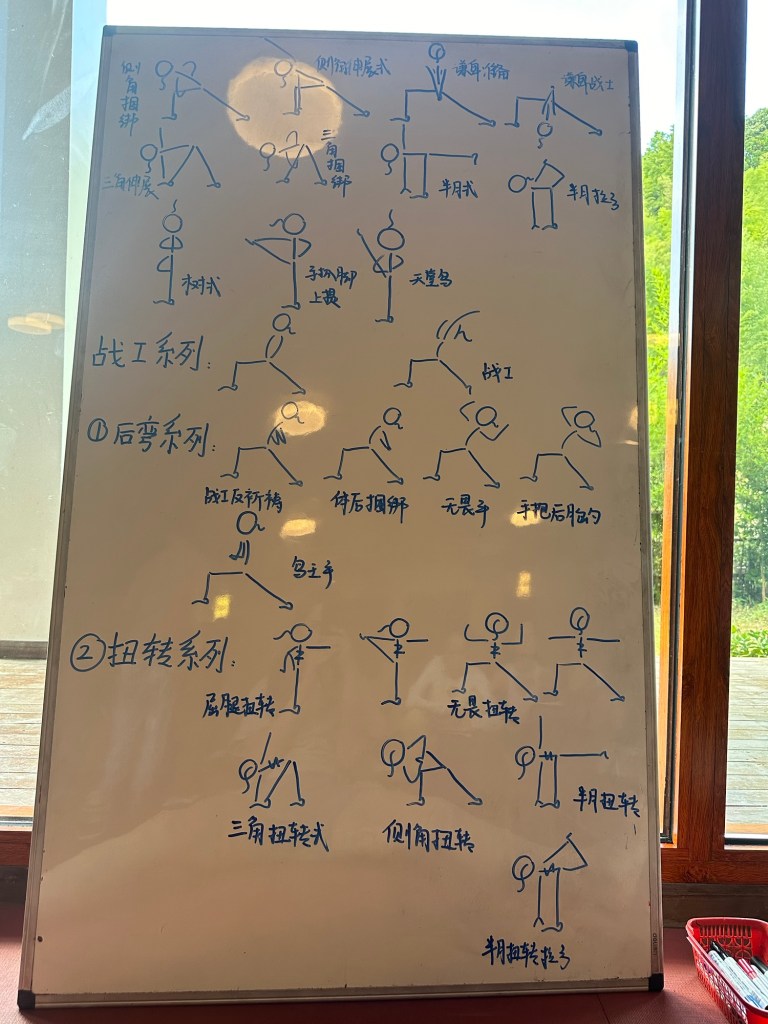 侧角捆绑
侧角伸展式
谦卑准备
谦卑战士
三角伸展
三角捆绑
半月式
半月拉弓
树式
手抓脚上提
天堂鸟
战I系列:
战I
①后弯系列:
战I反祈祷
体后捆绑
无畏手
手抱后胎
鸟王手
②扭转系列:
屈腿扭转
无畏扭转
三角扭转式
侧角扭转
半月扭转
半月扭转拉弓